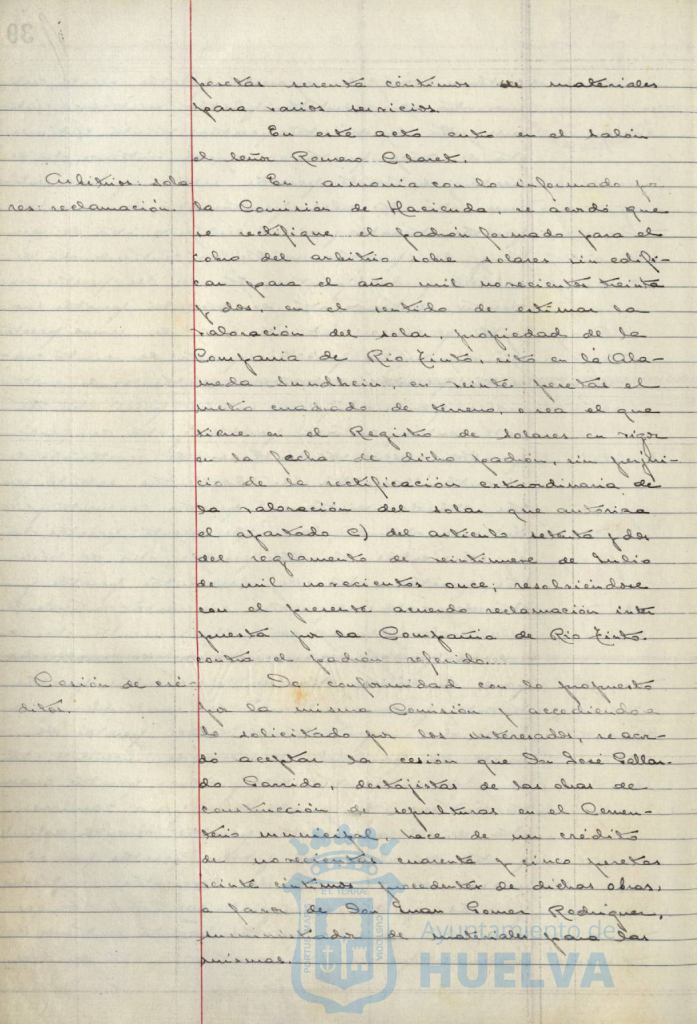 pesetas sesenta céntimos de materiales
para varios servicios.
En este acto entró en el salón
el Señor Romero Claret.
Arbitrios: sola
res: reclamación.
En armonía con lo informado po
la Comisión de Hacienda, se acordó que
se rectifique el padrón formado para el
cobro del arbitrio sobre solares sin edifi-
car para el año mil novecientos treinta
y dos, en el sentido de estimar la
valoración del solar, propiedad de la
Compañía de Rio Tinto, sito en la Ala-
meda Sundhein, en veinte pesetas el
metro cuadrado de terreno, o sea el que
tiene en el Registro de solares en vigor
en la fecha de dicho padrón, sin perjui-
cio de la rectificación extraordinaria de
la valoración del solar que autoriza
el apartado C) del artículo setenta y dos
del reglamento de veintinueve de Junio
de mil novecientos once; resolviéndose
con el presente acuerdo reclamación inter
puesta por la Compañía de Rio Tinto
contra el padrón referido.
Cesión de cré-
ditos.
De conformidad con lo propuesto
por la misma Comisión y accediendo a
lo solicitado por los interesados, se acor-
dó aceptar la cesión que Don José Gallar-
do Garrido, destajista de las obras de
construcción de sepulturas en el Cemen-
terio municipal, hace de un crédito
de novecientas cuarenta y cinco pesetas
veinte céntimos procedentes de dichas obras,
a favor de Don Juan Gomez Rodriguez,
suministrador de materiales para las
mismas.
PORTUS MARIS
ET TERRAE
CUSTODIA
Ayuntamiento de
HUELVA